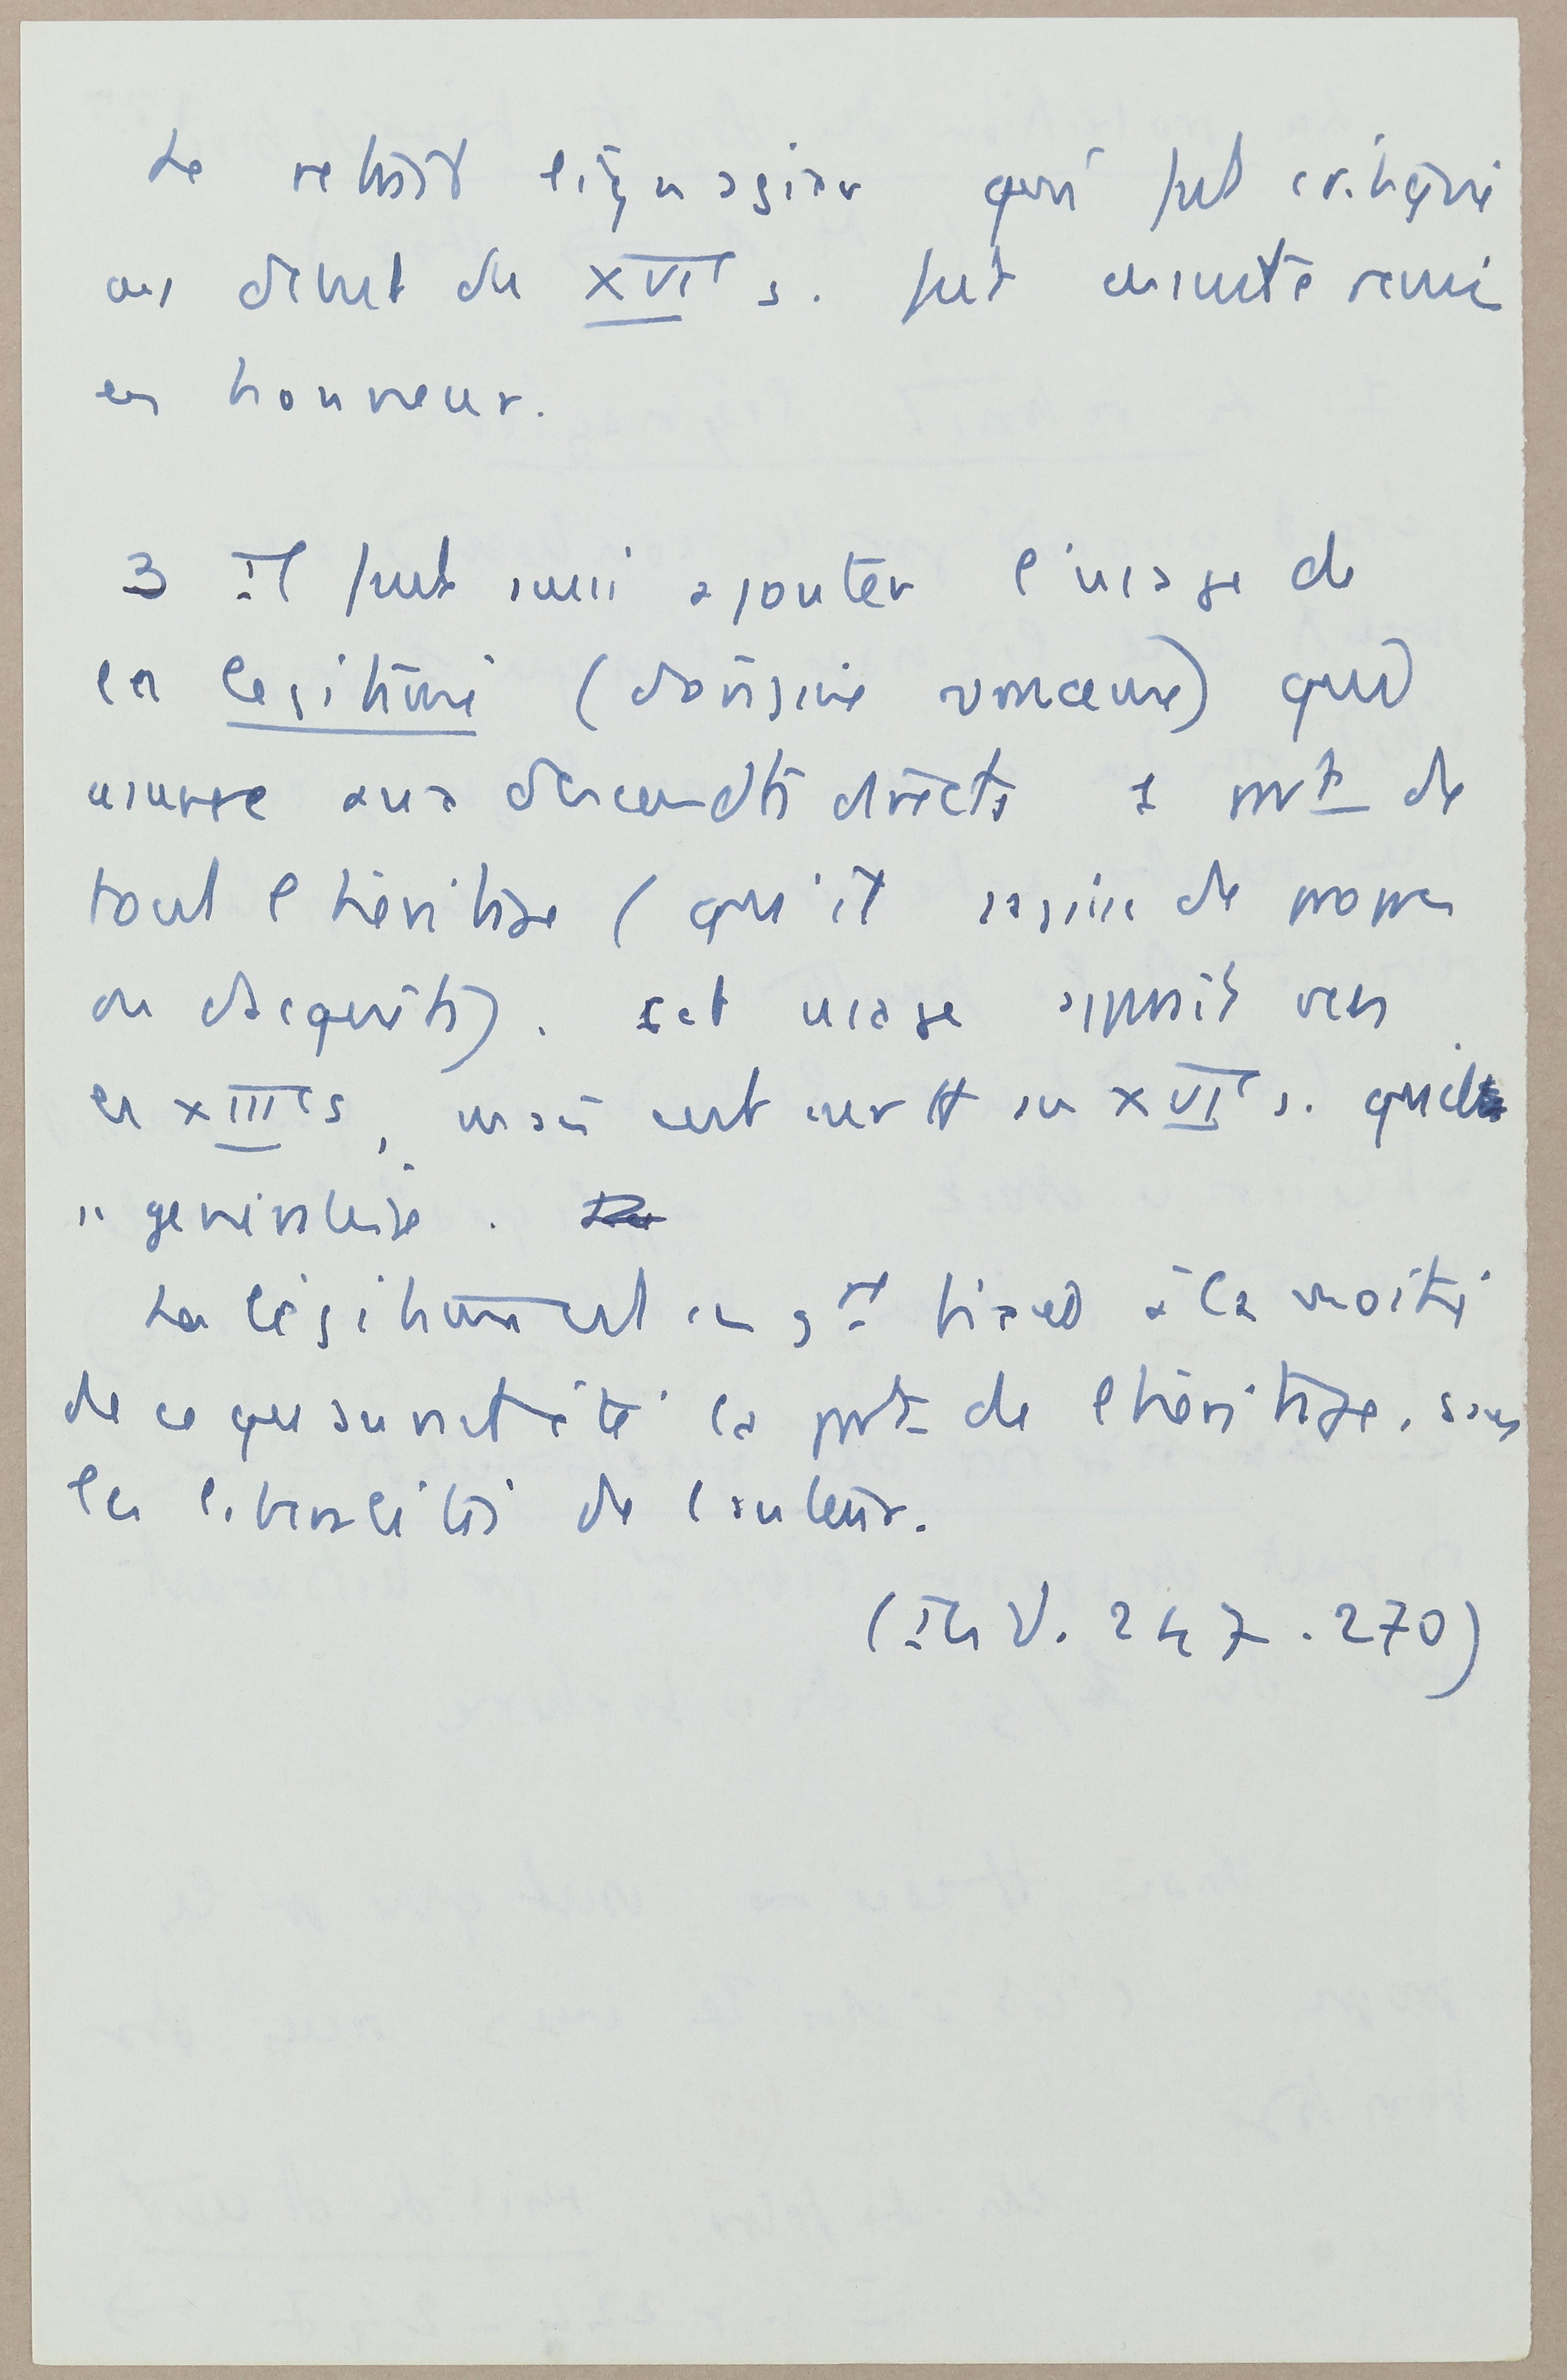 Le retrait lignager qui fut critiqué
au début du XVIe s. fut ensuite remis
en honneur.
3 Il faut aussi ajouter l'usage de
la légitime (d'origine romaine) qui
assure aux descendts directs 1 part de
tout l'héritage (qu'il s'agisse de propres
ou d'acquêts). Cet usage apparait vers
le XIIIe s, mais c'est surtt au XVIe s. qu'il
se généralise.
La légitime est en gal fixée à la moitié
de ce qu'aurait été la part de l'héritage, sans
les libéralités de l'auteur.
(Th V. 247.270)